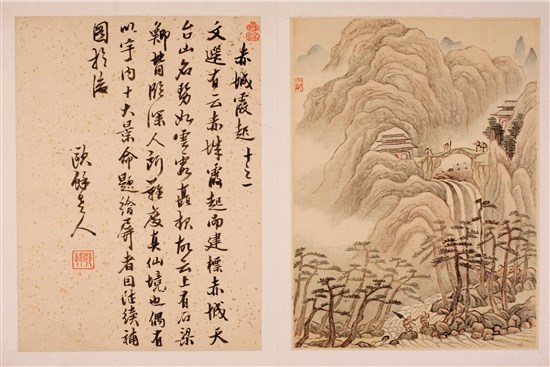 赤城霞起 十之一
文選有云赤城霞起而建標赤城天
台山名勢如雲霞矗起故云上有石梁
臨深人所難度真仙境也偶有
以宇内十大景命題繪屏者因續補
圖於後
餘人